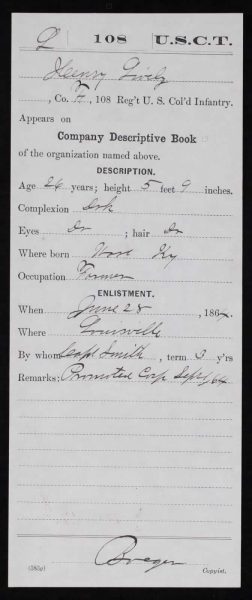 L 108 U.S.C.T.
Henry Lively
, Co. F, 108 Reg't U. S. Col'd Infantry.
Appears on
Company Descriptive Book
of the organization named above.
DESCRIPTION.
Age 26 years; height 5 feet 9 inches.
Complexion Drk
Eyes Dr ; hair Dr
Where born Ky
Occupation Farmer
ENLISTMENT.
When June 28 , 1864.
Where Louisville
By whom Capt Smith , term 3 y'rs
Remarks: Promoted Corp Sept /64
(383g) Copyist.